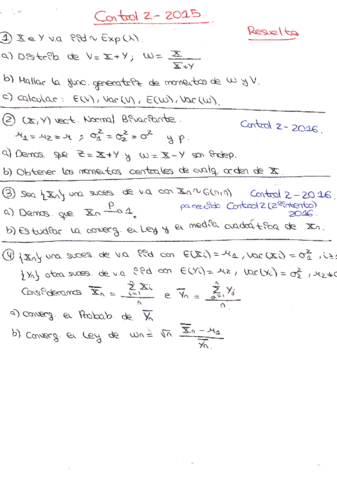 Control 2 - 2015
Resuelto
① X e Y v.a iid ~ Exp(λ).
a) Distrib de V = X+Y; W = X/(X+Y)
b) Hallar la func. generatriz de momentos de W y V.
c) calcular: E(V), Var(V), E(W), Var(W).
② (X,Y) vect. Normal Bivariante.
Control 2 - 2016.
μ₁ = μ₂ = μ ; σ₁² = σ₂² = σ² y ρ.
a) Demos que Z = X+Y y W = X-Y son indep.
b) Obtener los momentos centrales de cualq. orden de X
③ Sea {Xn} una suces de v.a con Xn ~ G(n,n) Control 2 - 2016.
parecido Control 2 (2º intento) 2016.
a) Demos. que Xn →ᴾ 1.
b) Estudiar la converg. en Ley y en media cuadrática de Xn.
④ {Xn} una suces de v.a iid con E(Xi) = μ₁, Var(Xi) = σ₁²,
{Yn} otra suces de v.a iid con E(Yi) = μ₂, Var(Yi) = σ₂², μ₂≠0
Consideramos X̄n = Σ Xi / n e Ȳn = Σ Yi / n
a) Converg en Probab de Ȳn
b) Converg en Ley de Wn = √n (X̄n - μ₁)/Ȳn